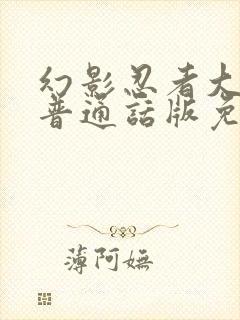 幻影忍者大
普通話版免
薄阿嫵